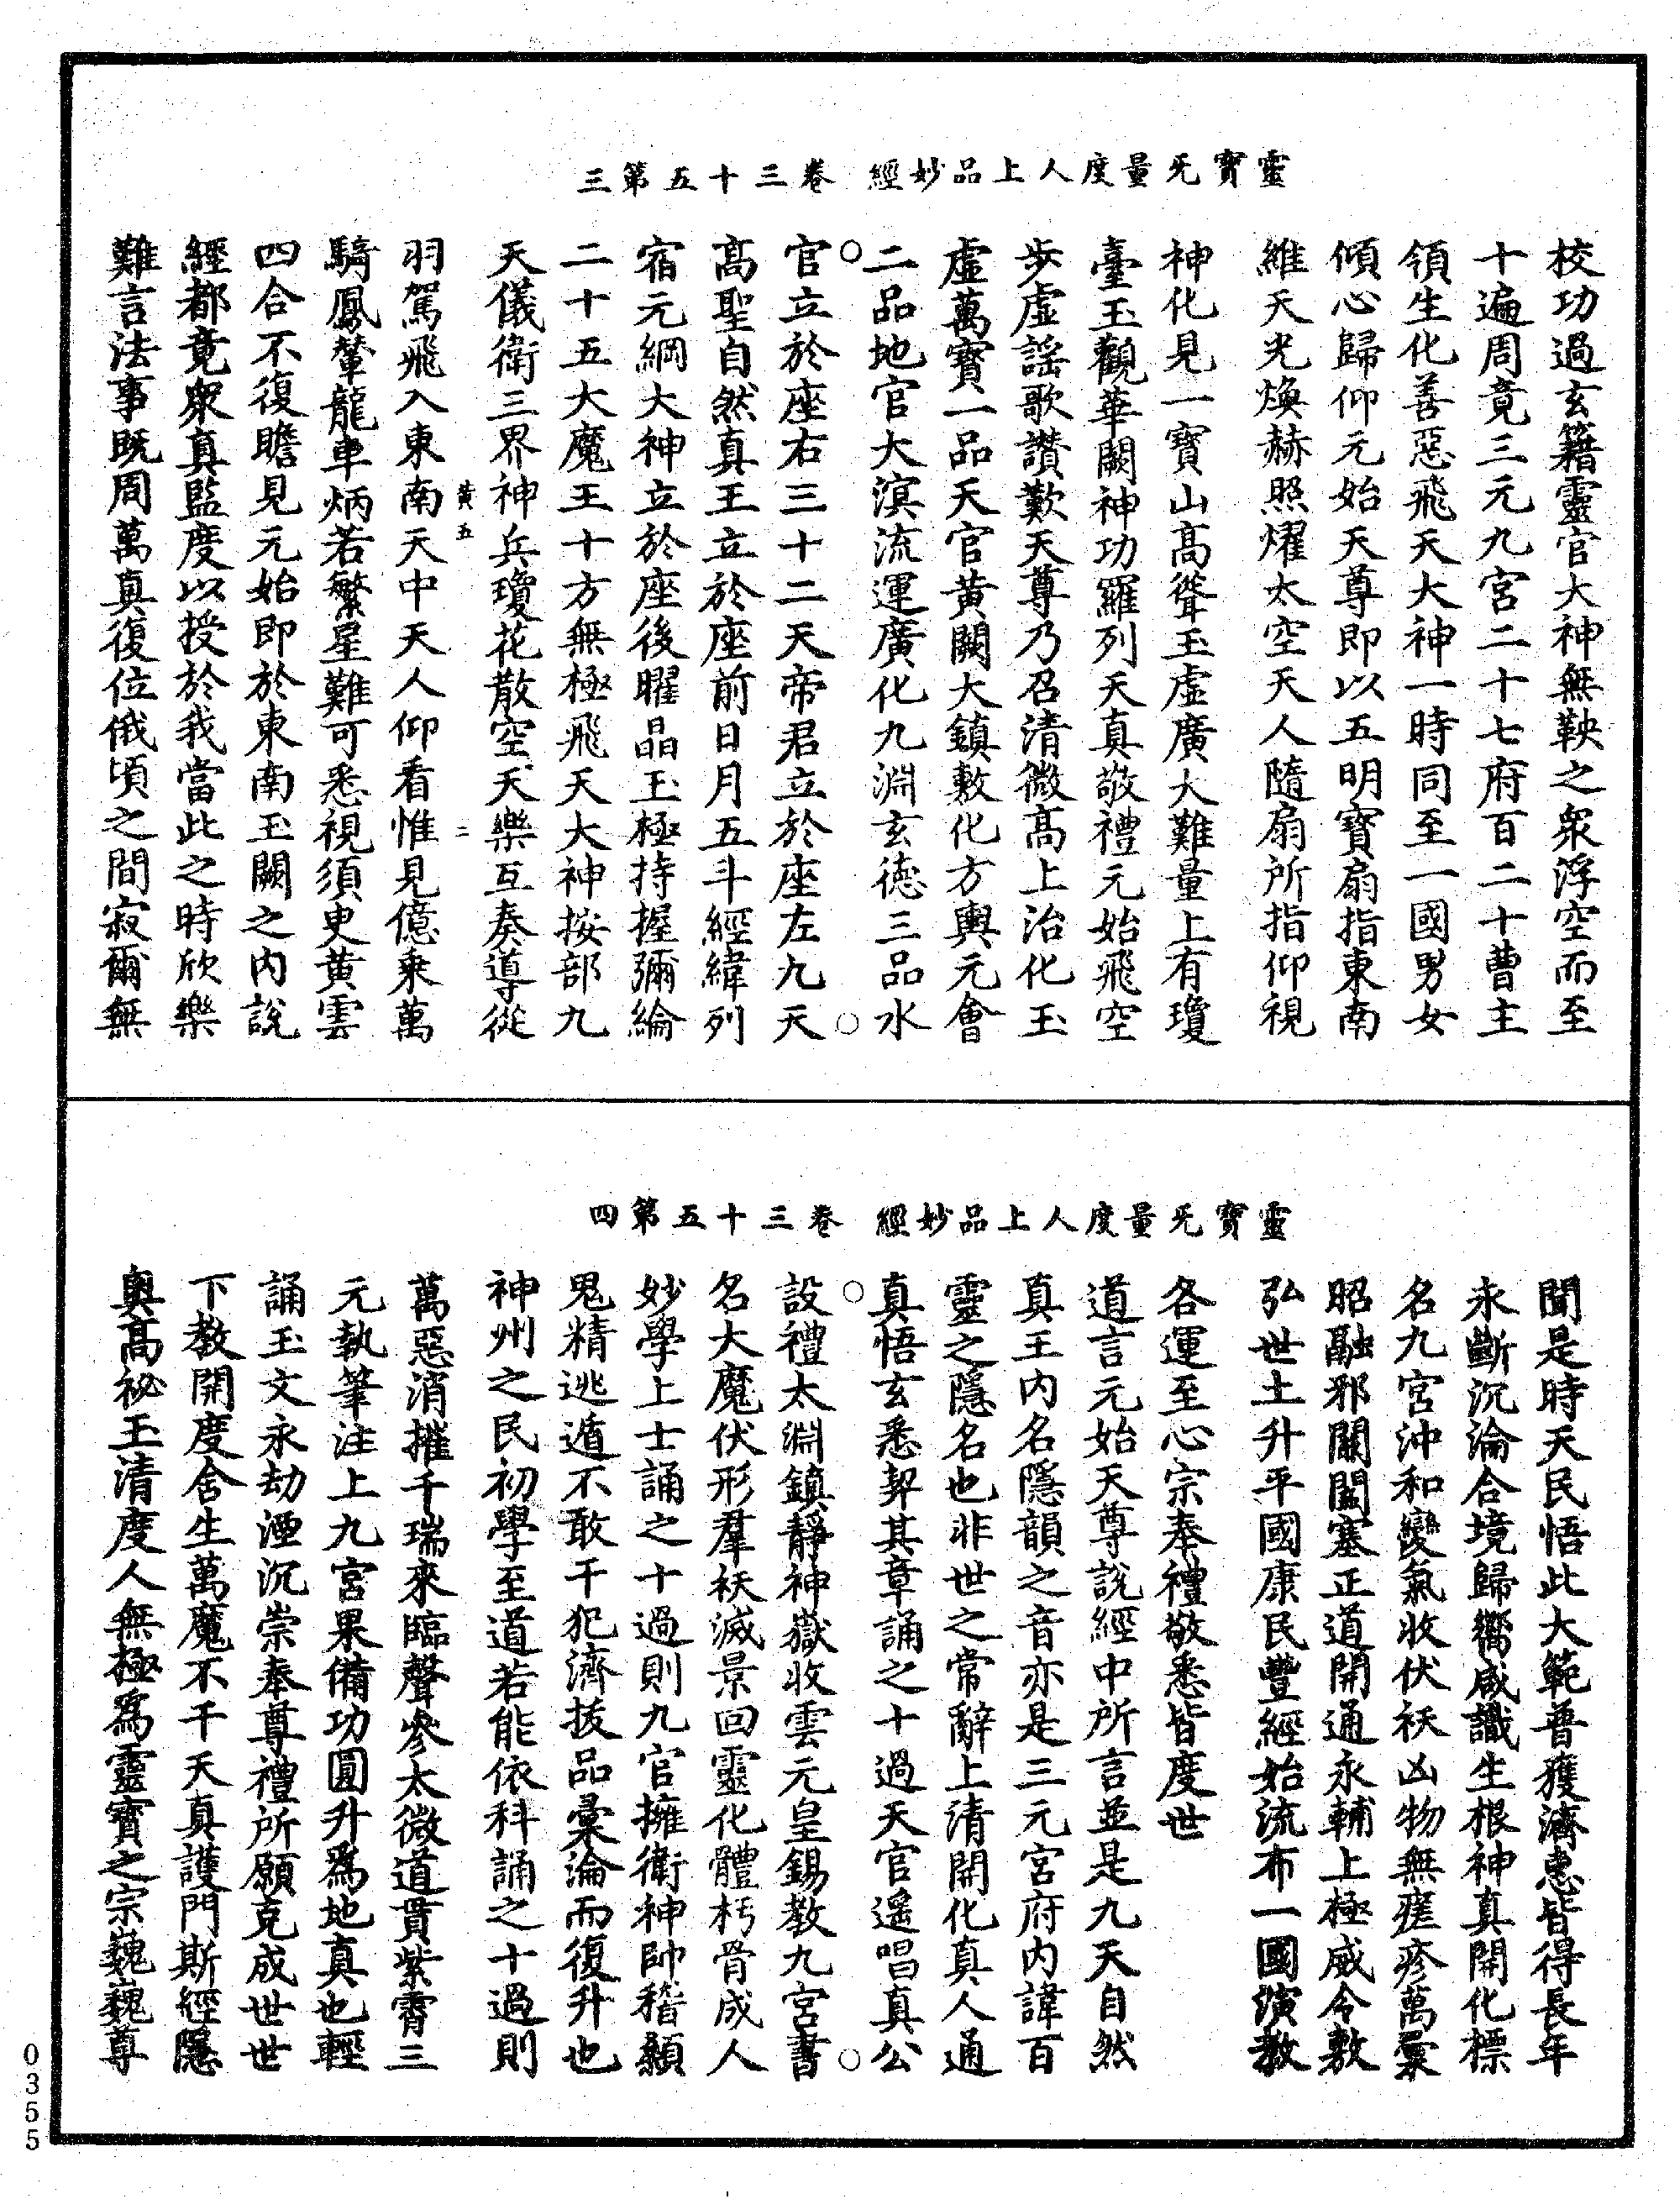 靈寶旡量度人上品妙經 卷三十五第三
校功過玄籍靈官大神無鞅之衆浮空而至
十遍周竟三元九宮二十七府百二十曹主
領生化善惡飛天大神一時同至一國男女
傾心歸仰元始天尊即以五明寶扇指東南
維天光煥赫照燿太空天人隨扇所指仰視
神化見一寶山高聳玉虛廣大難量上有瓊
臺玉觀華闕神功羅列天真敬禮元始飛空
步虛謠歌讚歎天尊乃召清微高上治化玉
虛萬寶一品天官黃闕大鎮敷化方輿元會
二品地官大溟流運廣化九淵玄德三品水
官立於座右三十二天帝君立於座左九天
高聖自然真王立於座前日月五斗經緯列
宿元綱大神立於座後曜晶玉極持握彌綸
二十五大魔王十方無極飛天大神按部九
天儀衛三界神兵瓊花散空天樂互奏導從
黃五 二
羽駕飛入東南天中天人仰看惟見億乘萬
騎鳳輦龍車炳若繁星難可悉視須臾黃雲
四合不復瞻見元始即於東南玉闕之內說
經都竟衆真監度以授於我當此之時欣樂
難言法事既周萬真復位俄頃之間寂爾無
靈寶旡量度人上品妙經 卷三十五第四
聞是時天民悟此大範普獲濟惠皆得長年
永斷沉淪合境歸嚮咸識生根神真開化標
名九宮沖和變氣收伏祅凶物無瘥疹萬彙
昭融邪關闔塞正道開通永輔上極威令敷
弘世土升平國康民豐經始流布一國演教
各運至心宗奉禮敬悉皆度世
道言元始天尊說經中所言並是九天自然
真王內名隱韻之音亦是三元宮府內諱百
靈之隱名也非世之常辭上清開化真人通
真悟玄悉契其章誦之十過天官遙唱真公
設禮太淵鎮靜神嶽收雲元皇錫教九宮書
名大魔伏形羣祅滅景回靈化體朽骨成人
妙學上士誦之十過則九官擁衛神帥稽顙
鬼精逃遁不敢干犯濟拔品彙淪而復升也
神州之民初學至道若能依科誦之十過則
萬惡消摧千瑞來臨聲參太微道貫紫霄三
元執筆注上九宮果備功圓升為地真也輕
誦玉文永劫湮沉崇奉尊禮所願克成世世
下教開度含生萬魔不干天真護門斯經隱
奧高祕玉清度人無極為靈寶之宗巍巍尊
0355